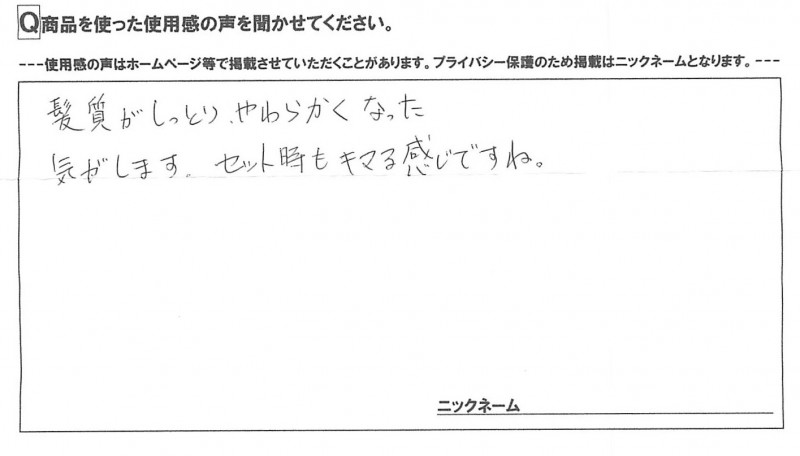 Q商品を使った使用感の声を聞かせてください。
---使用感の声はホームページ等で掲載させていただくことがあります。プライバシー保護のため掲載はニックネームとなります。---
髪質がしっとり、やわらかくなった
気がします。セット時もキマる感じですね。
ニックネーム